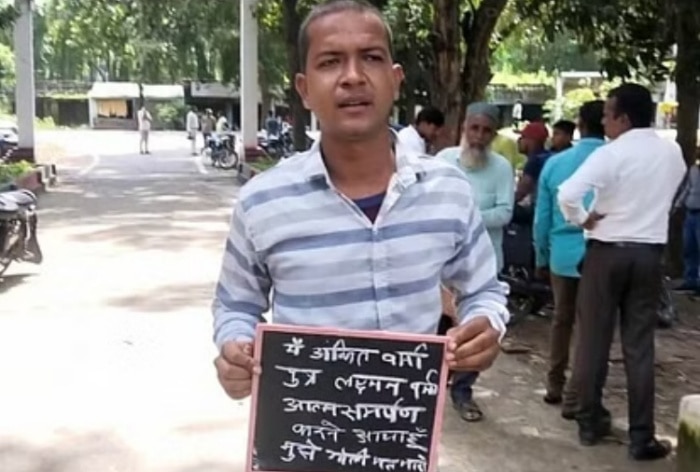 मैं अंकित वर्मा
पुत्र लक्ष्मन वर्मा
आत्मसमर्पण
करने आयाहूँ
मुझे गोली मत मारो